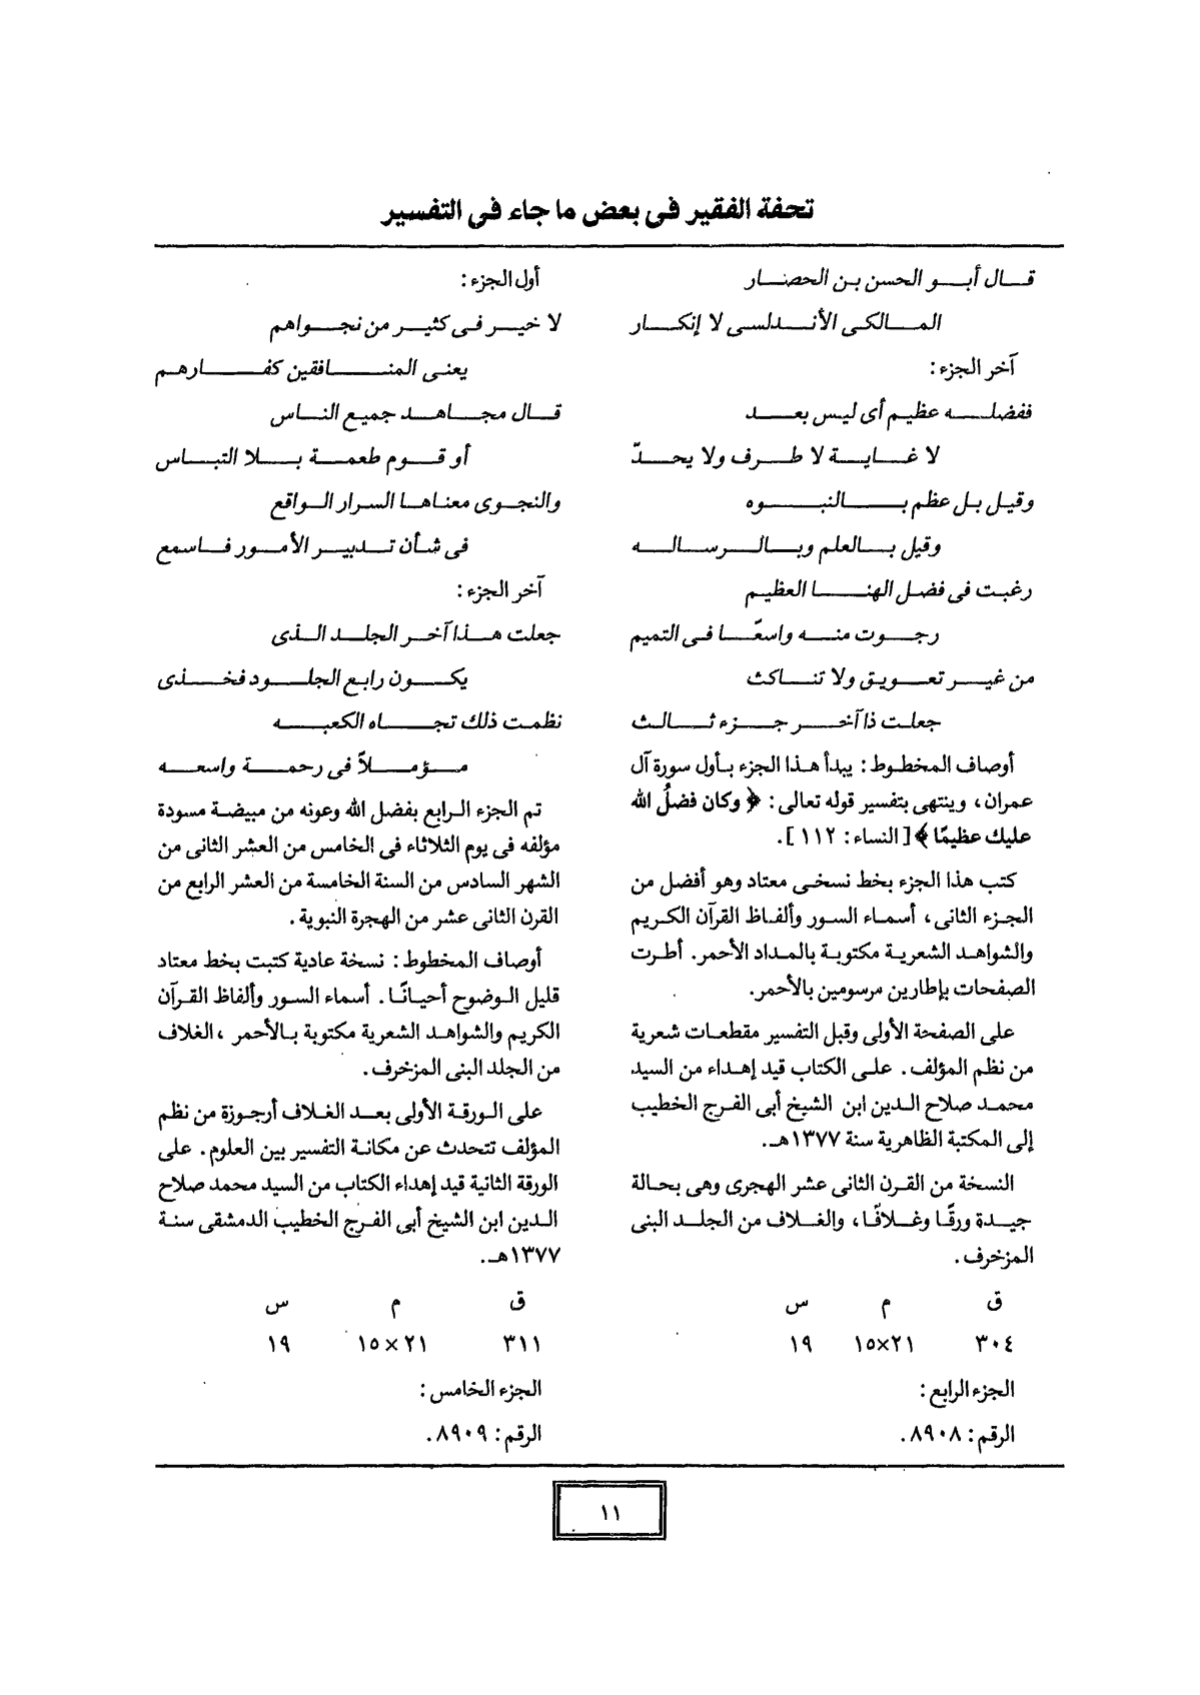 تحفة الفقير فى بعض ما جاء فى التفسير
قال أبو الحسن بن الحصار
المالكى الأندلسى لا إنكار
آخر الجزء :
ففضله عظيم أى ليس بعد
لا غاية لا طرف ولا يحدّ
وقيل بل عظم بالنبوه
وقيل بالعلم وبالرساله
رغبت فى فضل الهنا العظيم
رجوت منه واسعًا فى التميم
من غير تعويق ولا تناكث
جعلت ذا آخر جزء ثالث
أوصاف المخطوط : يبدأ هذا الجزء بأول سورة آل
عمران ، وينتهى بتفسير قوله تعالى : ﴿ وكان فضلُ الله
عليك عظيمًا ﴾ [ النساء : ١١٢ ] .
كتب هذا الجزء بخط نسخى معتاد وهو أفضل من
الجزء الثانى ، أسماء السور وألفاظ القرآن الكريم
والشواهد الشعرية مكتوبة بالمداد الأحمر . أطرت
الصفحات بإطارين مرسومين بالأحمر .
على الصفحة الأولى وقبل التفسير مقطعات شعرية
من نظم المؤلف . على الكتاب قيد إهداء من السيد
محمد صلاح الدين ابن الشيخ أبى الفرج الخطيب
إلى المكتبة الظاهرية سنة ١٣٧٧هـ .
النسخة من القرن الثانى عشر الهجرى وهى بحالة
جيدة ورقًا وغلافًا ، والغلاف من الجلد البنى
المزخرف .
ق م س
٣٠٤ ٢١×١٥ ١٩
الجزء الرابع :
الرقم : ٨٩٠٨ .
أول الجزء :
لا خير فى كثير من نجواهم
يعنى المنافقين كفارهم
قال مجاهد جميع الناس
أو قوم طعمة بلا التباس
والنجوى معناها السرار الواقع
فى شأن تدبير الأمور فاسمع
آخر الجزء :
جعلت هذا آخر الجلد الذى
يكون رابع الجلود فخذى
نظمت ذلك تجاه الكعبه
مؤملاً فى رحمة واسعه
تم الجزء الرابع بفضل الله وعونه من مبيضة مسودة
مؤلفه فى يوم الثلاثاء فى الخامس من العشر الثانى من
الشهر السادس من السنة الخامسة من العشر الرابع من
القرن الثانى عشر من الهجرة النبوية .
أوصاف المخطوط : نسخة عادية كتبت بخط معتاد
قليل الوضوح أحيانًا . أسماء السور وألفاظ القرآن
الكريم والشواهد الشعرية مكتوبة بالأحمر ، الغلاف
من الجلد البنى المزخرف .
على الورقة الأولى بعد الغلاف أرجوزة من نظم
المؤلف تتحدث عن مكانة التفسير بين العلوم . على
الورقة الثانية قيد إهداء الكتاب من السيد محمد صلاح
الدين ابن الشيخ أبى الفرج الخطيب الدمشقى سنة
١٣٧٧هـ .
ق م س
٣١١ ٢١×١٥ ١٩
الجزء الخامس :
الرقم : ٨٩٠٩ .
١١